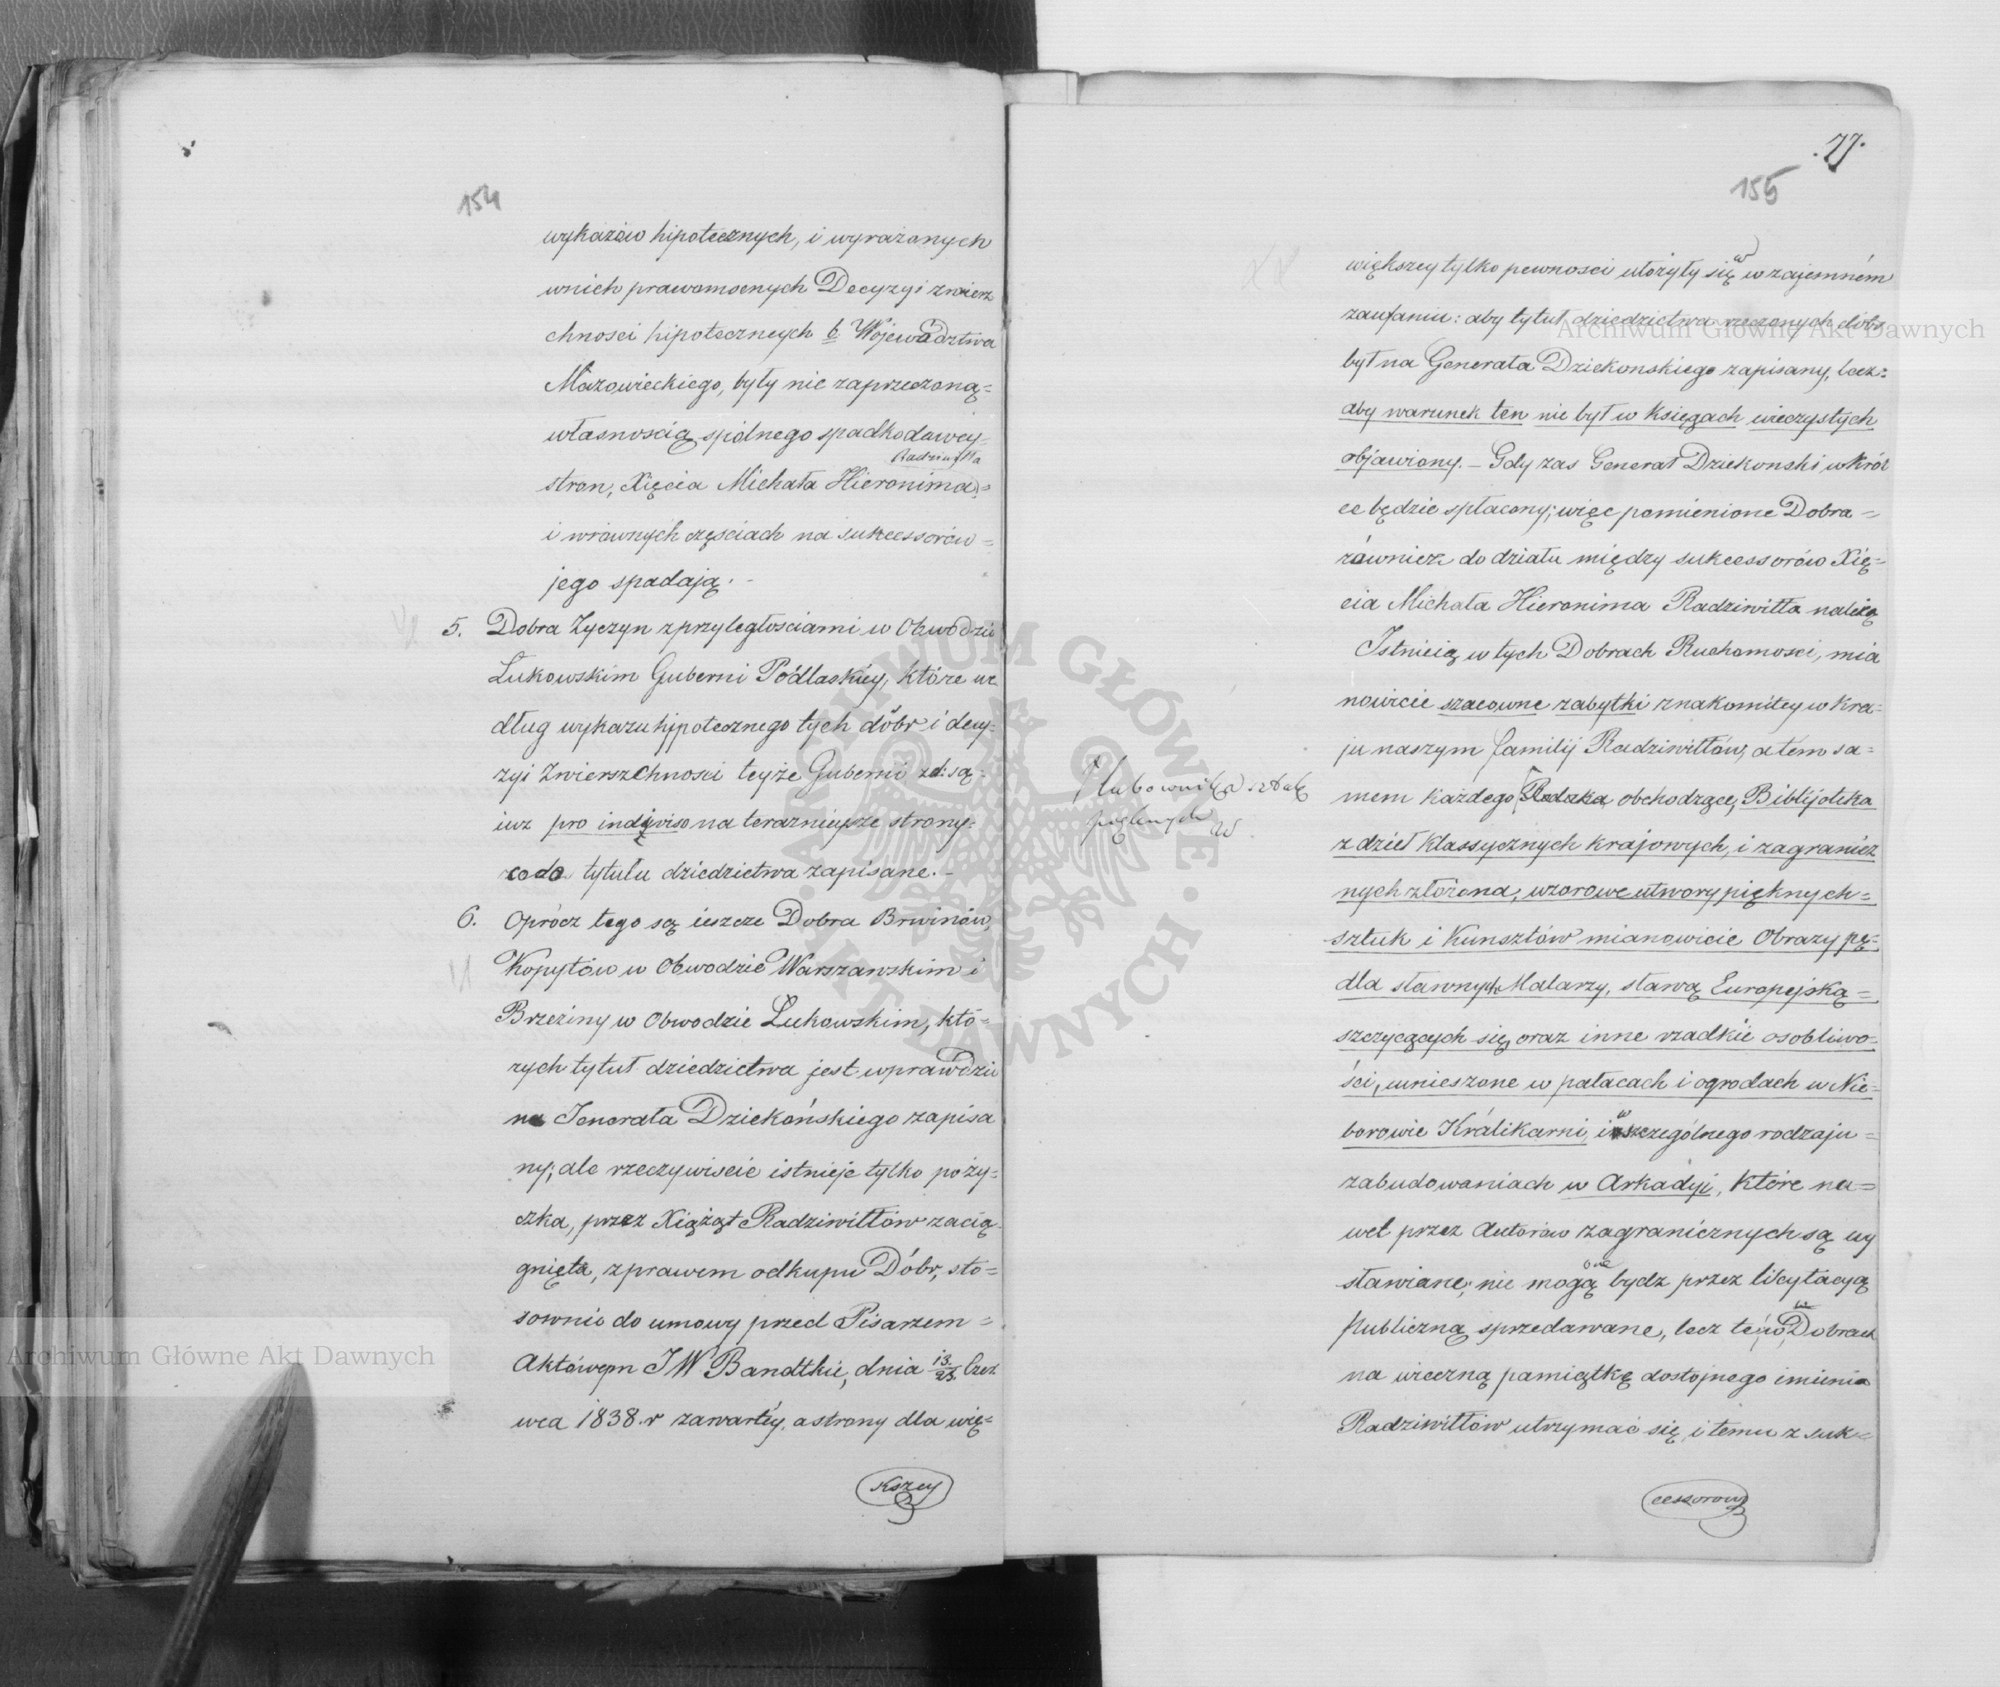 154
wykazów hipotecznych, i wyrażonych
wnich prawomocnych Decyzyi zwierz
chnosci hipotecznych b. Wojewodztwa
Mazowieckiego, były nie zaprzeczoną=
własnoscią spólnego spadkodawcy
Radziwiłła
stron, Xięcia Michała Hieronima,=
i wrównych częsciach na sukcessorów=
jego spadają.-
5. Dobra Zyczyn zprzyległosciami w Obwodzie
Łukowskim Guberni Pódlaskiéy, które we
dług wykazu hypotecznego tych dóbr i decy-
zyi Zwierszchnosci teyże Guberni zd: są=
iuz pro indiviso na terazniejsze strony-
codo tytułu dziedzictwa zapisane.-
6. Oprócz tego są ieszcze Dobra Brwinów,
Kopytów w Obwodzie Warszawskim i
Brzeziny w Obwodzie Łukowskim, któ=
rych tytuł dziedzictwa jest wprawdzie
na Jenerała Dziekońskiego zapisa
ny; ale rzeczywiscie istnieje tylko poży-
czka, przez Xiążąt Radziwiłłów zacią-
gnięta, zprawem odkupu Dóbr, sto=
sownie do umowy przed Pisarzem=
Aktowym JW Bandtkie, dnia 13/25 Czer
wca 1838 r zawartéy, a strony dla wię=
kszey
77.
155
większey tylko pewnosci ułożyły się w wzajemném
zaufaniu: aby tytuł dziedzictwa rzeczonych dóbr
był na Generała Dziekonskiego zapisany, lecz=
aby warunek ten nie był w Księgach wieczystych
objawiony.- Gdy zas Generał Dziekonski wkrót
ce będzie spłacony; więc pomienione Dobra=
równiez do działu między sukcessorów Xię=
cia Michała Hieronima Radziwiłła należą
Istnieią w tych Dobrach Ruchomosci, mia
nowicie szacowne zabytki znakomitey w kra=
ju naszym familij Radziwiłłów, a tém sa=
mem każdego Rodaka obchodzące, Biblijoteka
z dzieł Klassycznych krajowych, i zagranicz
nych złożona, wzorowe utwory pięknych=
sztuk i Kunsztów mianowicie Obrazy pę=
dla sławnych Malarzy, sławą Europejską=
szczycących się, oraz inne rzadkie osobliwo=
ści, umieszone w pałacach i ogrodach w Nie=
borowie Królikarni, i w szczególnego rodzaju=
zabudowaniach w Arkadyi, które na=
wet przez Autorów zagranicznych są wy
sławiane; nie mogą one bydz przez licytacyą
publiczną sprzedawane, lecz Dobrach
na wieczną pamiątkę dostojnego imienia
Radziwiłłów utrzymać się, i temu z suk=
cessorów
Archiwum Główne Akt Dawnych
Archiwum Główne Akt Dawnych
ARCHIWUM GŁÓWNE AKT DAWNYCH